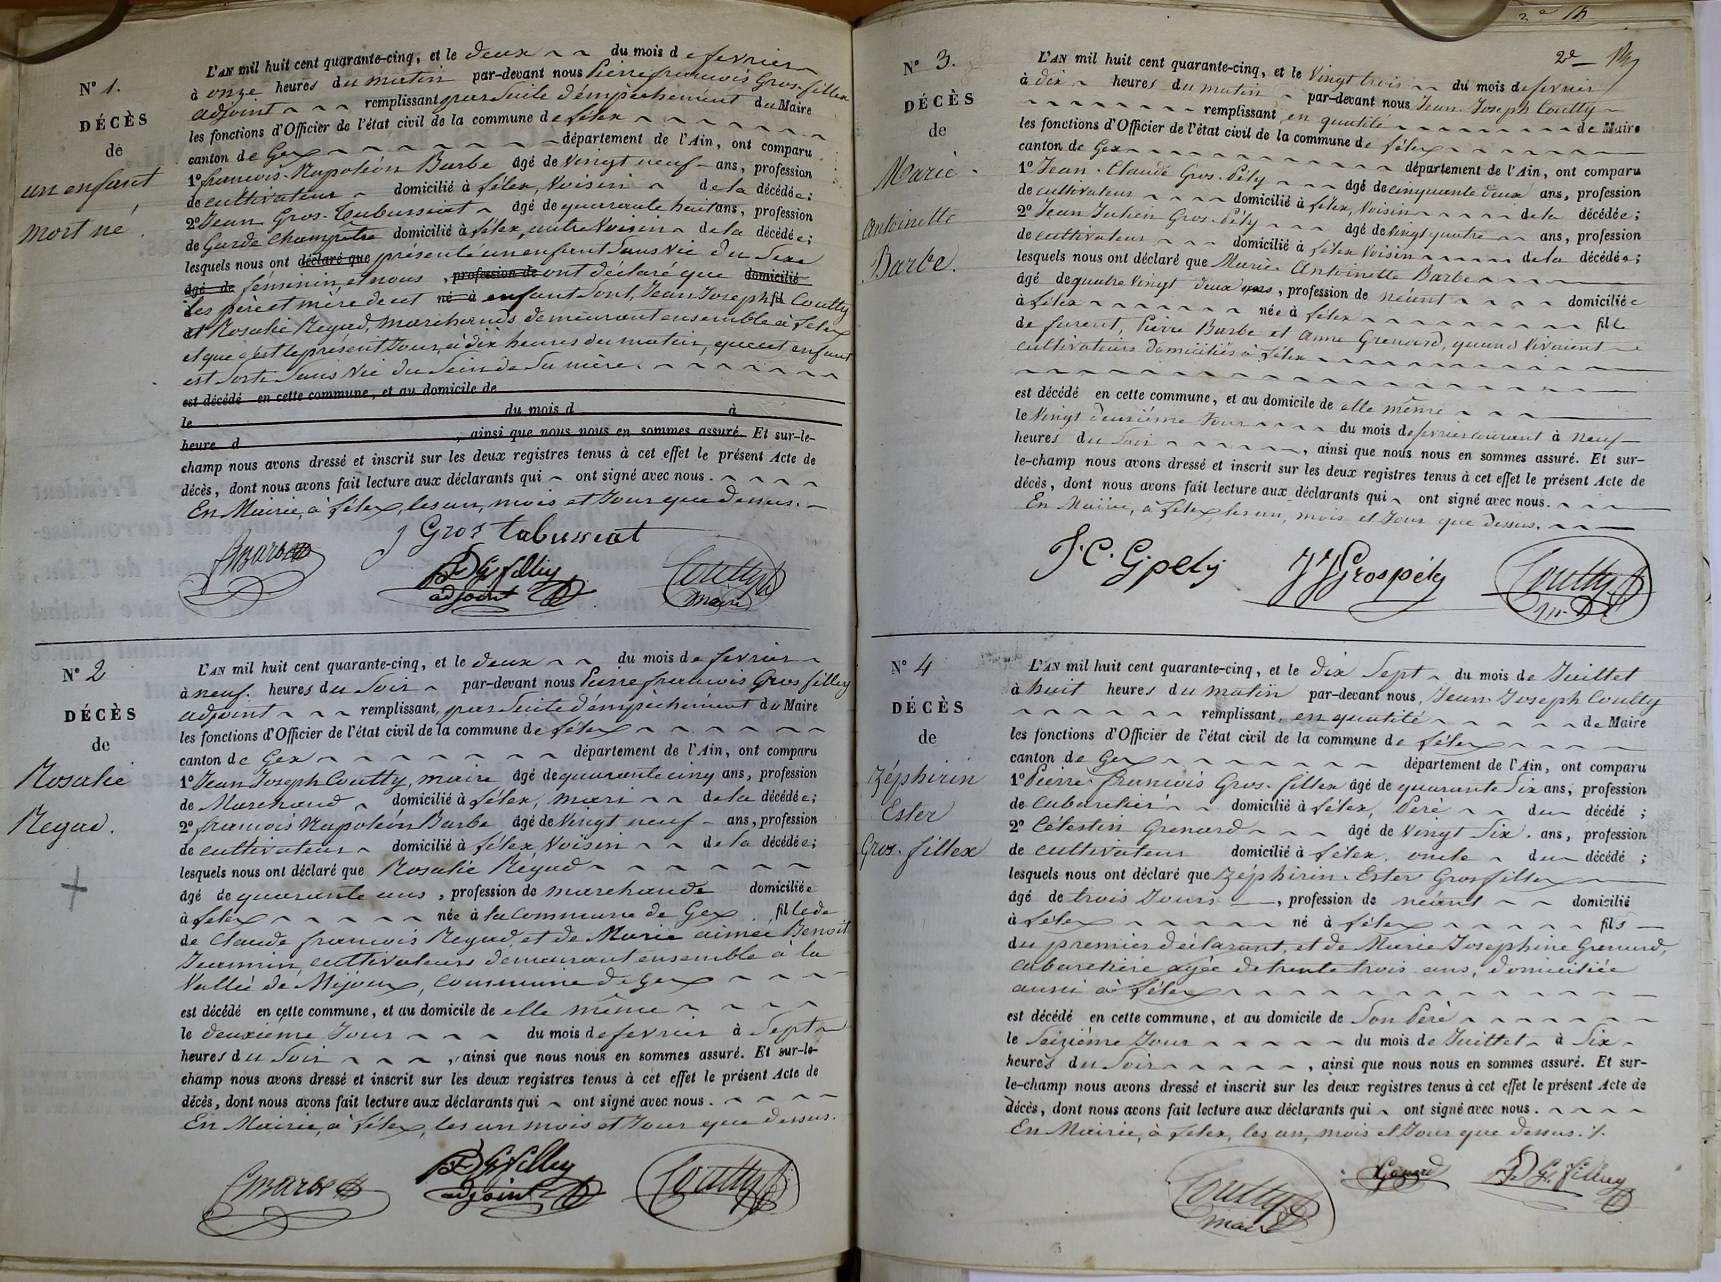 N° 1.
DÉCÈS
de
un enfant
mort né.
L'AN mil huit cent quarante-cinq, et le deux du mois de fevrier
à onze heures du matin par-devant nous Pierre françois Gros-fillex
adjoint remplissant par suite d'empêchement du Maire
les fonctions d'Officier de l'état civil de la commune de félex
canton de Gex département de l'Ain, ont comparu
1° françois-Napoléon Barbe âgé de vingt neuf ans, profession
de cultivateur domicilié à félex, Voisin de la décédée;
2° Jean Gros-Tabussiat âgé de quarante huit ans, profession
de Garde Champêtre domicilié à félex, autre Voisin de la décédée;
lesquels nous ont déclaré que présenté un enfant sans vie du Sexe
âgé de féminin, et nous, profession de ont déclaré que domicilié
les père et mère de cet né à enfant sont, Jean Joseph fil Coutty
et Rosalie Regad, marchands demeurant ensemble à félex
et que c'est le présent Jour, à dix heures du matin, que cet enfant
est sorti sans vie du Sein de Sa mère.
est décédé en cette commune, et au domicile de
le du mois d à
heure d , ainsi que nous nous en sommes assuré. Et sur-le-
champ nous avons dressé et inscrit sur les deux registres tenus à cet effet le présent Acte de
décès, dont nous avons fait lecture aux déclarants qui ont signé avec nous.
En Mairie, à félex, les an, mois et Jour que dessus.
J Gros tabussiat
Barbe
P F Gfilley
adjoint
Coutty
maire
N° 2
DÉCÈS
de
Rosalie
Regad.
L'AN mil huit cent quarante-cinq, et le deux du mois de fevrier
à neuf heures du Soir par-devant nous Pierre françois Gros filley
adjoint remplissant, par suite d'empêchement du Maire
les fonctions d'Officier de l'état civil de la commune de félex
canton de Gex département de l'Ain, ont comparu
1° Jean Joseph Coutty, maire âgé de quarante cinq ans, profession
de Marchand domicilié à félex, mari de la décédée;
2° françois Napoléon Barbe âgé de Vingt neuf ans, profession
de cultivateur domicilié à félex Voisin de la décédée;
lesquels nous ont déclaré que Rosalie Régad
âgé de quarante ans, profession de marchande domiciliée
à félex née à la Commune de Gex fille de
de Claude françois Regad, et de Marie aimée Benoit
Jeannin, cultivateurs demeurant ensemble à la
Vallée de Mijoux, Commune de Gex
est décédé en cette commune, et au domicile de elle même
le deuxième Jour du mois de fevrier à Sept
heures du Soir , ainsi que nous nous en sommes assuré. Et sur-le-
champ nous avons dressé et inscrit sur les deux registres tenus à cet effet le présent Acte de
décès, dont nous avons fait lecture aux déclarants qui ont signé avec nous.
En Mairie, à félex, les an mois et Jour que dessus.
Barbe
P F Gfilley
adjoint
Coutty
2e
N° 3.
DÉCÈS
de
Marie
Antoinette
Barbe.
L'AN mil huit cent quarante-cinq, et le Vingt trois du mois de fevrier
à dix heures du matin par-devant nous Jean-Joseph Coutty
remplissant en qualité de Maire
les fonctions d'Officier de l'état civil de la commune de félex
canton de Gex département de l'Ain, ont comparu
1° Jean-Claude Gros-Pély âgé de cinquante deux ans, profession
de cultivateur domicilié à félex, Voisin de la décédée;
2° Jean Julien Gros-Pély âgé de Vingt quatre ans, profession
de cultivateur domicilié à félex Voisin de la décédée;
lesquels nous ont déclaré que Marie Antoinette Barbe
âgé de quatre Vingt deux ans, profession de néant domiciliée
à félex née à félex fille
de furent, Pierre Barbe et Anne Grenard, quand vivaient
cultivateurs domiciliés à félex
est décédé en cette commune, et au domicile de elle même
le Vingt deuxième Jour du mois de fevrier courant à neuf
heures du Soir , ainsi que nous nous en sommes assuré. Et sur-
le-champ nous avons dressé et inscrit sur les deux registres tenus à cet effet le présent Acte de
décès, dont nous avons fait lecture aux déclarants qui ont signé avec nous.
En Mairie, à félex, les an, mois et Jour que dessus.
J.C. Gpély
JJ Grospély
Coutty
N° 4
DÉCÈS
de
Zéphirin
Ester
Gros-fillex
L'AN mil huit cent quarante-cinq, et le dix Sept du mois de Juillet
à huit heures du matin par-devant nous Jean-Joseph Coutty
remplissant en qualité de Maire
les fonctions d'Officier de l'état civil de la commune de félex
canton de Gex département de l'Ain, ont comparu
1° Pierre-françois Gros-fillex âgé de quarante Six ans, profession
de Cabaretier domicilié à félex, Père du décédé;
2° Célestin Grenard âgé de Vingt Six ans, profession
de cultivateur domicilié à félex, oncle du décédé;
lesquels nous ont déclaré que Zéphirin-Ester Grosfillex
âgé de trois Jours, profession de néant domicilié
à félex né à félex fils
du premier déclarant, et de Marie Josephine Grenard,
Cabaretière agée de trente trois ans, domiciliée
aussi à félex
est décédé en cette commune, et au domicile de Son Père
le Seizième Jour du mois de Juillet à Six
heures du Soir , ainsi que nous nous en sommes assuré. Et sur-
le-champ nous avons dressé et inscrit sur les deux registres tenus à cet effet le présent Acte de
décès, dont nous avons fait lecture aux déclarants qui ont signé avec nous.
En Mairie, à félex, les an, mois et Jour que dessus.
Coutty
maire
P F Gfilley